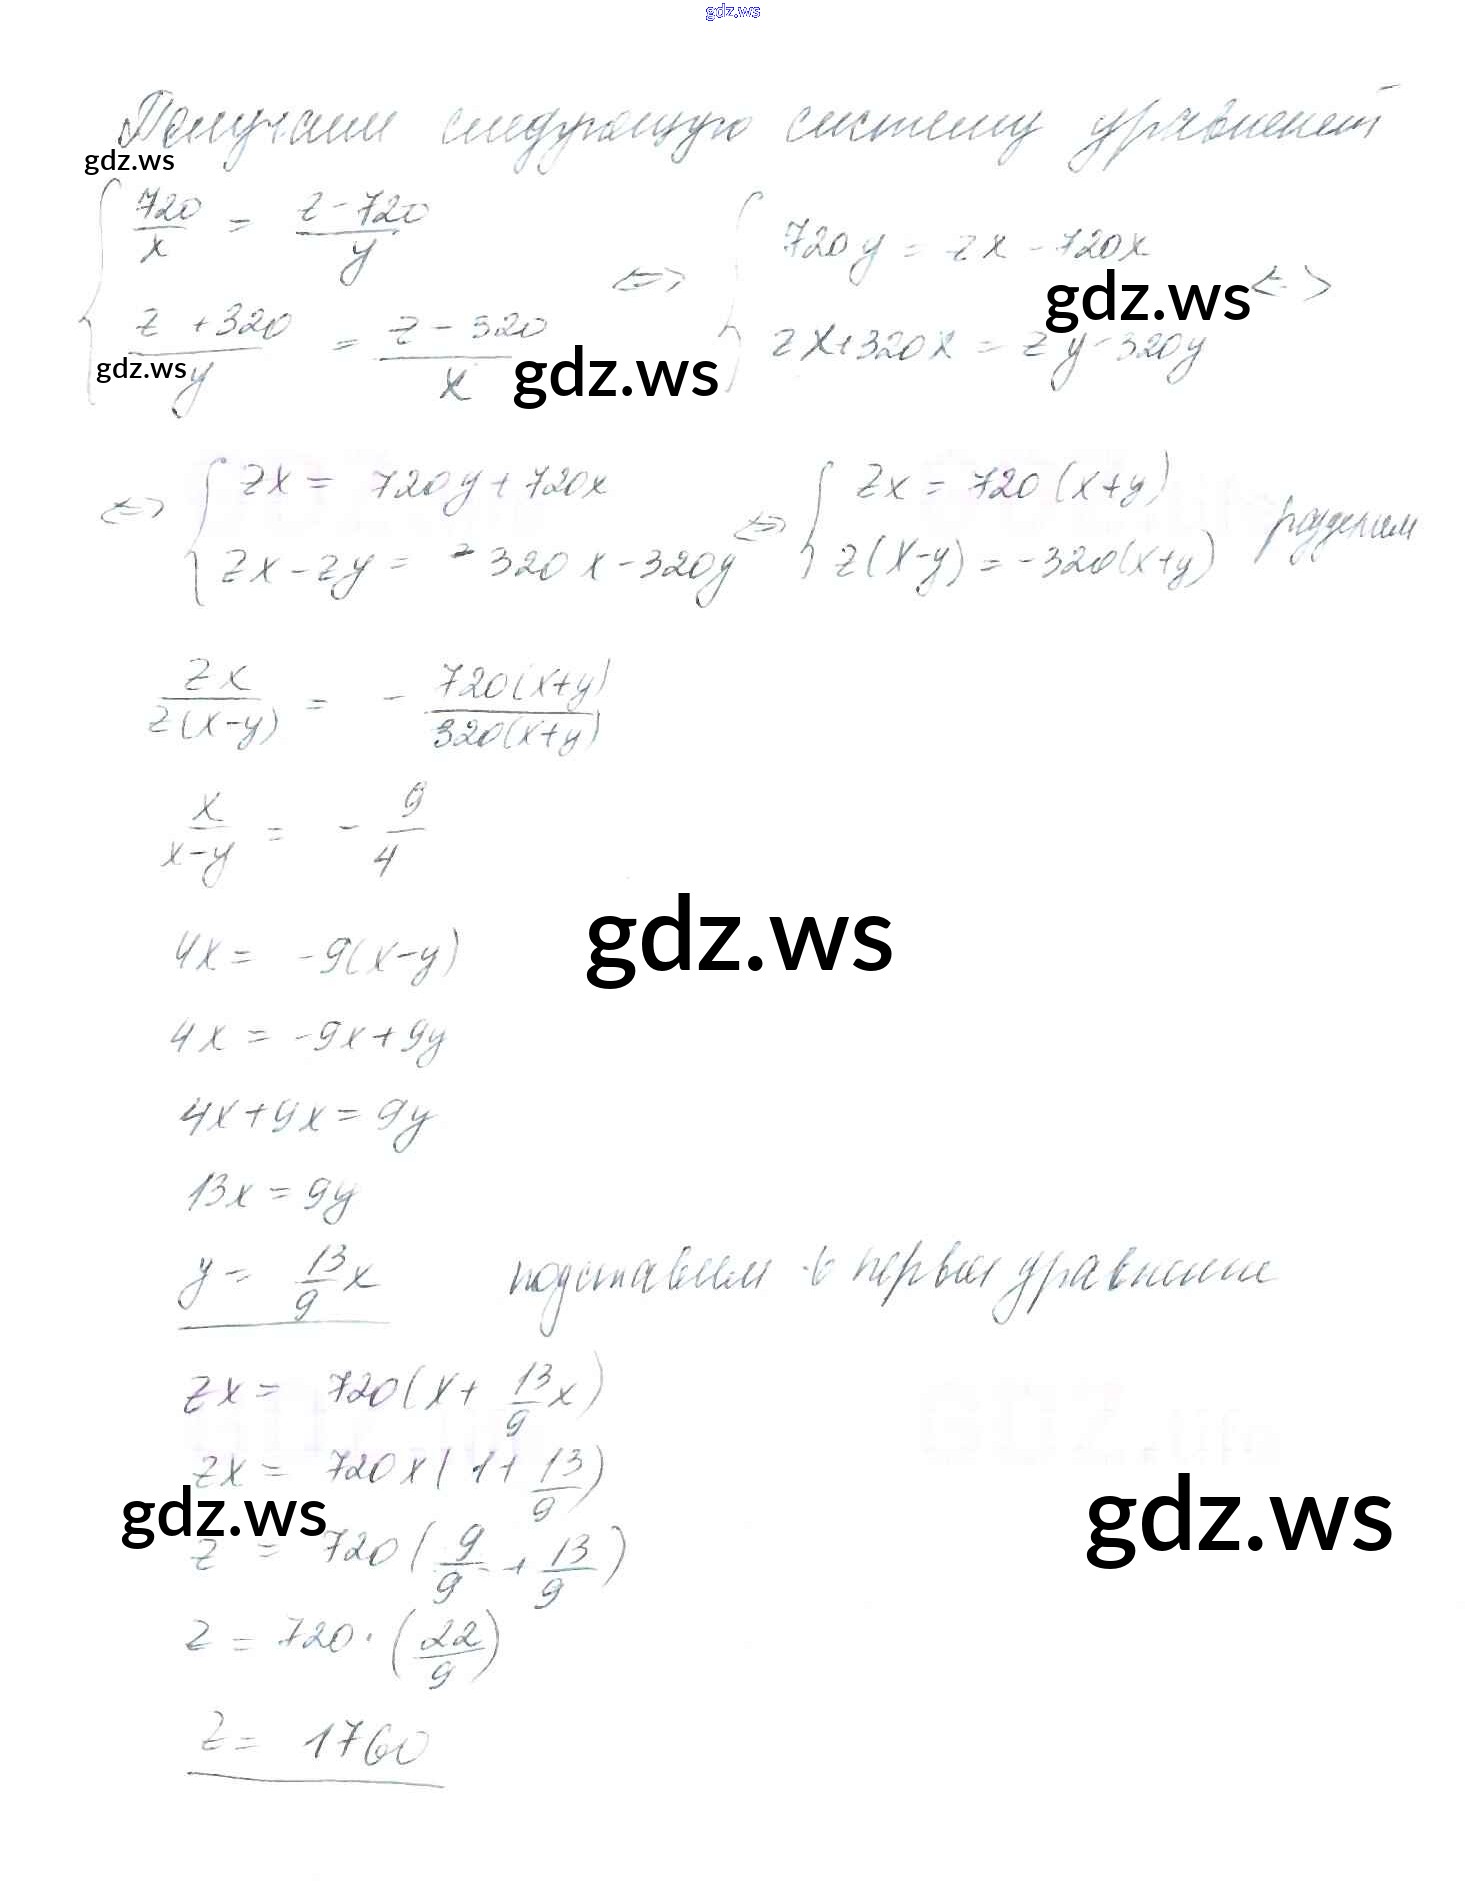 gdz.ws
Получаем следующую систему уравнений
gdz.ws
{ 720/x = z-720/y <=> { 720y = zx - 720x <=>
z+320/y = z-320/x zx+320x = zy-320y
gdz.ws gdz.ws gdz.ws
<=> { zx = 720y+720x <=> { zx = 720(x+y) разделим
zx-zy = -320x-320y z(x-y) = -320(x+y)
zx/z(x-y) = - 720(x+y)/320(x+y)
x/x-y = - 9/4
4x = -9(x-y)
gdz.ws
4x = -9x+9y
4x+9x = 9y
13x = 9y
y = 13/9 x подставим в первое уравнение
zx = 720(x+ 13/9 x)
zx = 720x(1+ 13/9)
gdz.ws gdz.ws
z = 720(9/9 + 13/9)
z = 720·(22/9)
z = 1760